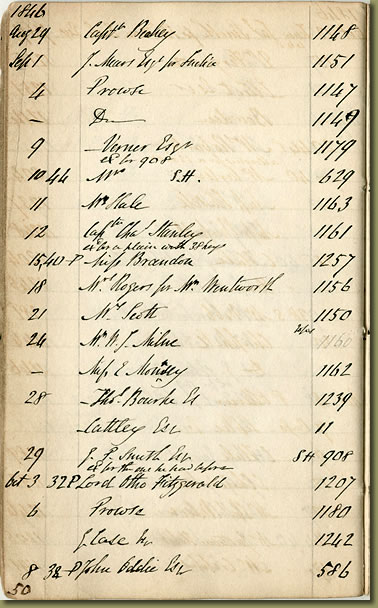 1846
Aug 29 Captn Beakey 1148
Sept 1 J. Mears Esqr for India 1151
4 Prowse 1147
— Do — 1149
9 — Verner Esqr 1179
Ex for 908
10 44 Mrs S.H. 629
11 Mrs Hale 1163
12 Captn Chas Stanley 1161
Ex for a plain with 38 keys
15, 40 P Miss Brandon 1257
18 Mrs Rogers for Mrs Wentworth 1156
21 Mrs Scott 1150
24 Mr W. J. Milne 1160
— Miss E. 1162
28 — Thos. Bourke Es 1239
— Cattley Esqr 11
29 J. P. Smith Esqr SH 908
Ex for the one he had before
Oct 3 32 P Lord Otho Fitzgerald 1207
6 Prowse 1180
J Case Esqr 1242
8 32 P John Oddie Esqr 586
50